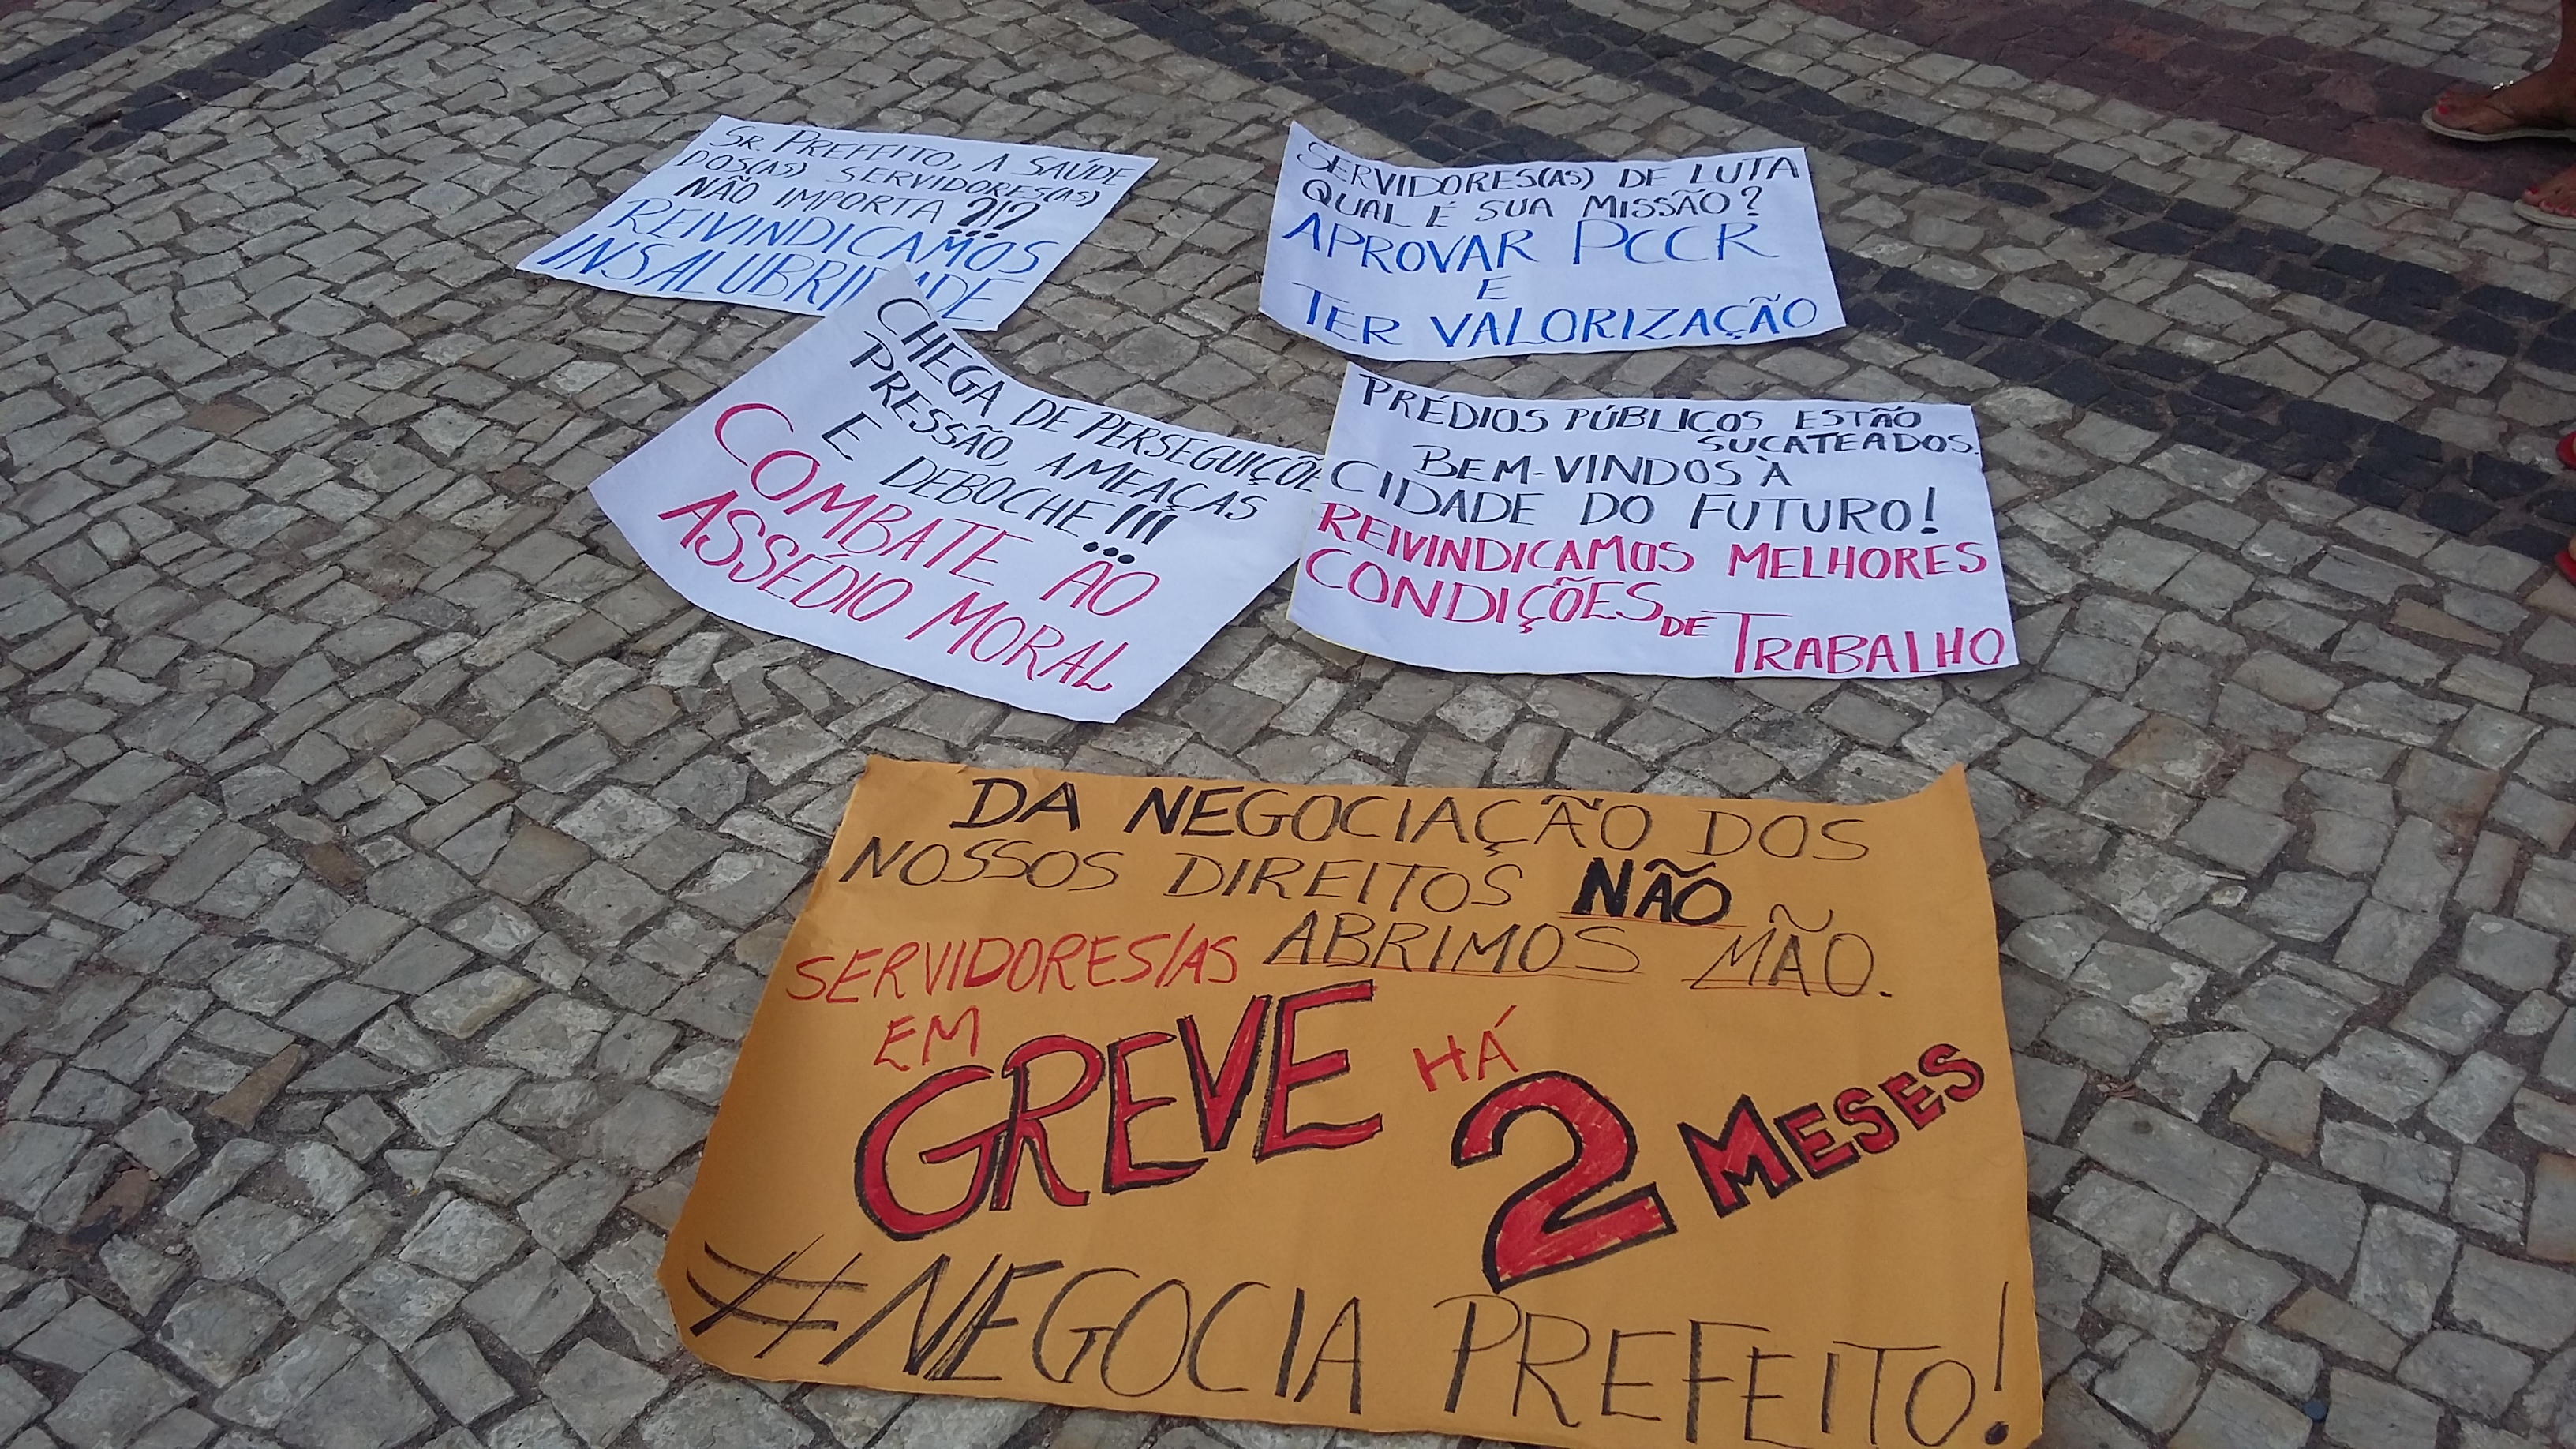 SR. PREFEITO, A SAÚDE
DOS(AS) SERVIDORES(AS)
NÃO IMPORTA ?!?
REIVINDICAMOS
INSALUBRIDADE
SERVIDORES(AS) DE LUTA
QUAL É SUA MISSÃO?
APROVAR PCCR
E
TER VALORIZAÇÃO
CHEGA DE PERSEGUIÇÕE
PRESSÃO, AMEAÇAS
E DEBOCHE!!!
COMBATE AO
ASSÉDIO MORAL
PRÉDIOS PÚBLICOS ESTÃO
SUCATEADOS.
BEM-VINDOS À
CIDADE DO FUTURO!
REIVINDICAMOS MELHORES
CONDIÇÕES DE TRABALHO
DA NEGOCIAÇÃO DOS
NOSSOS DIREITOS NÃO
ABRIMOS MÃO.
SERVIDORES/AS
EM GREVE HÁ
2 MESES
#NEGOCIA PREFEITO!